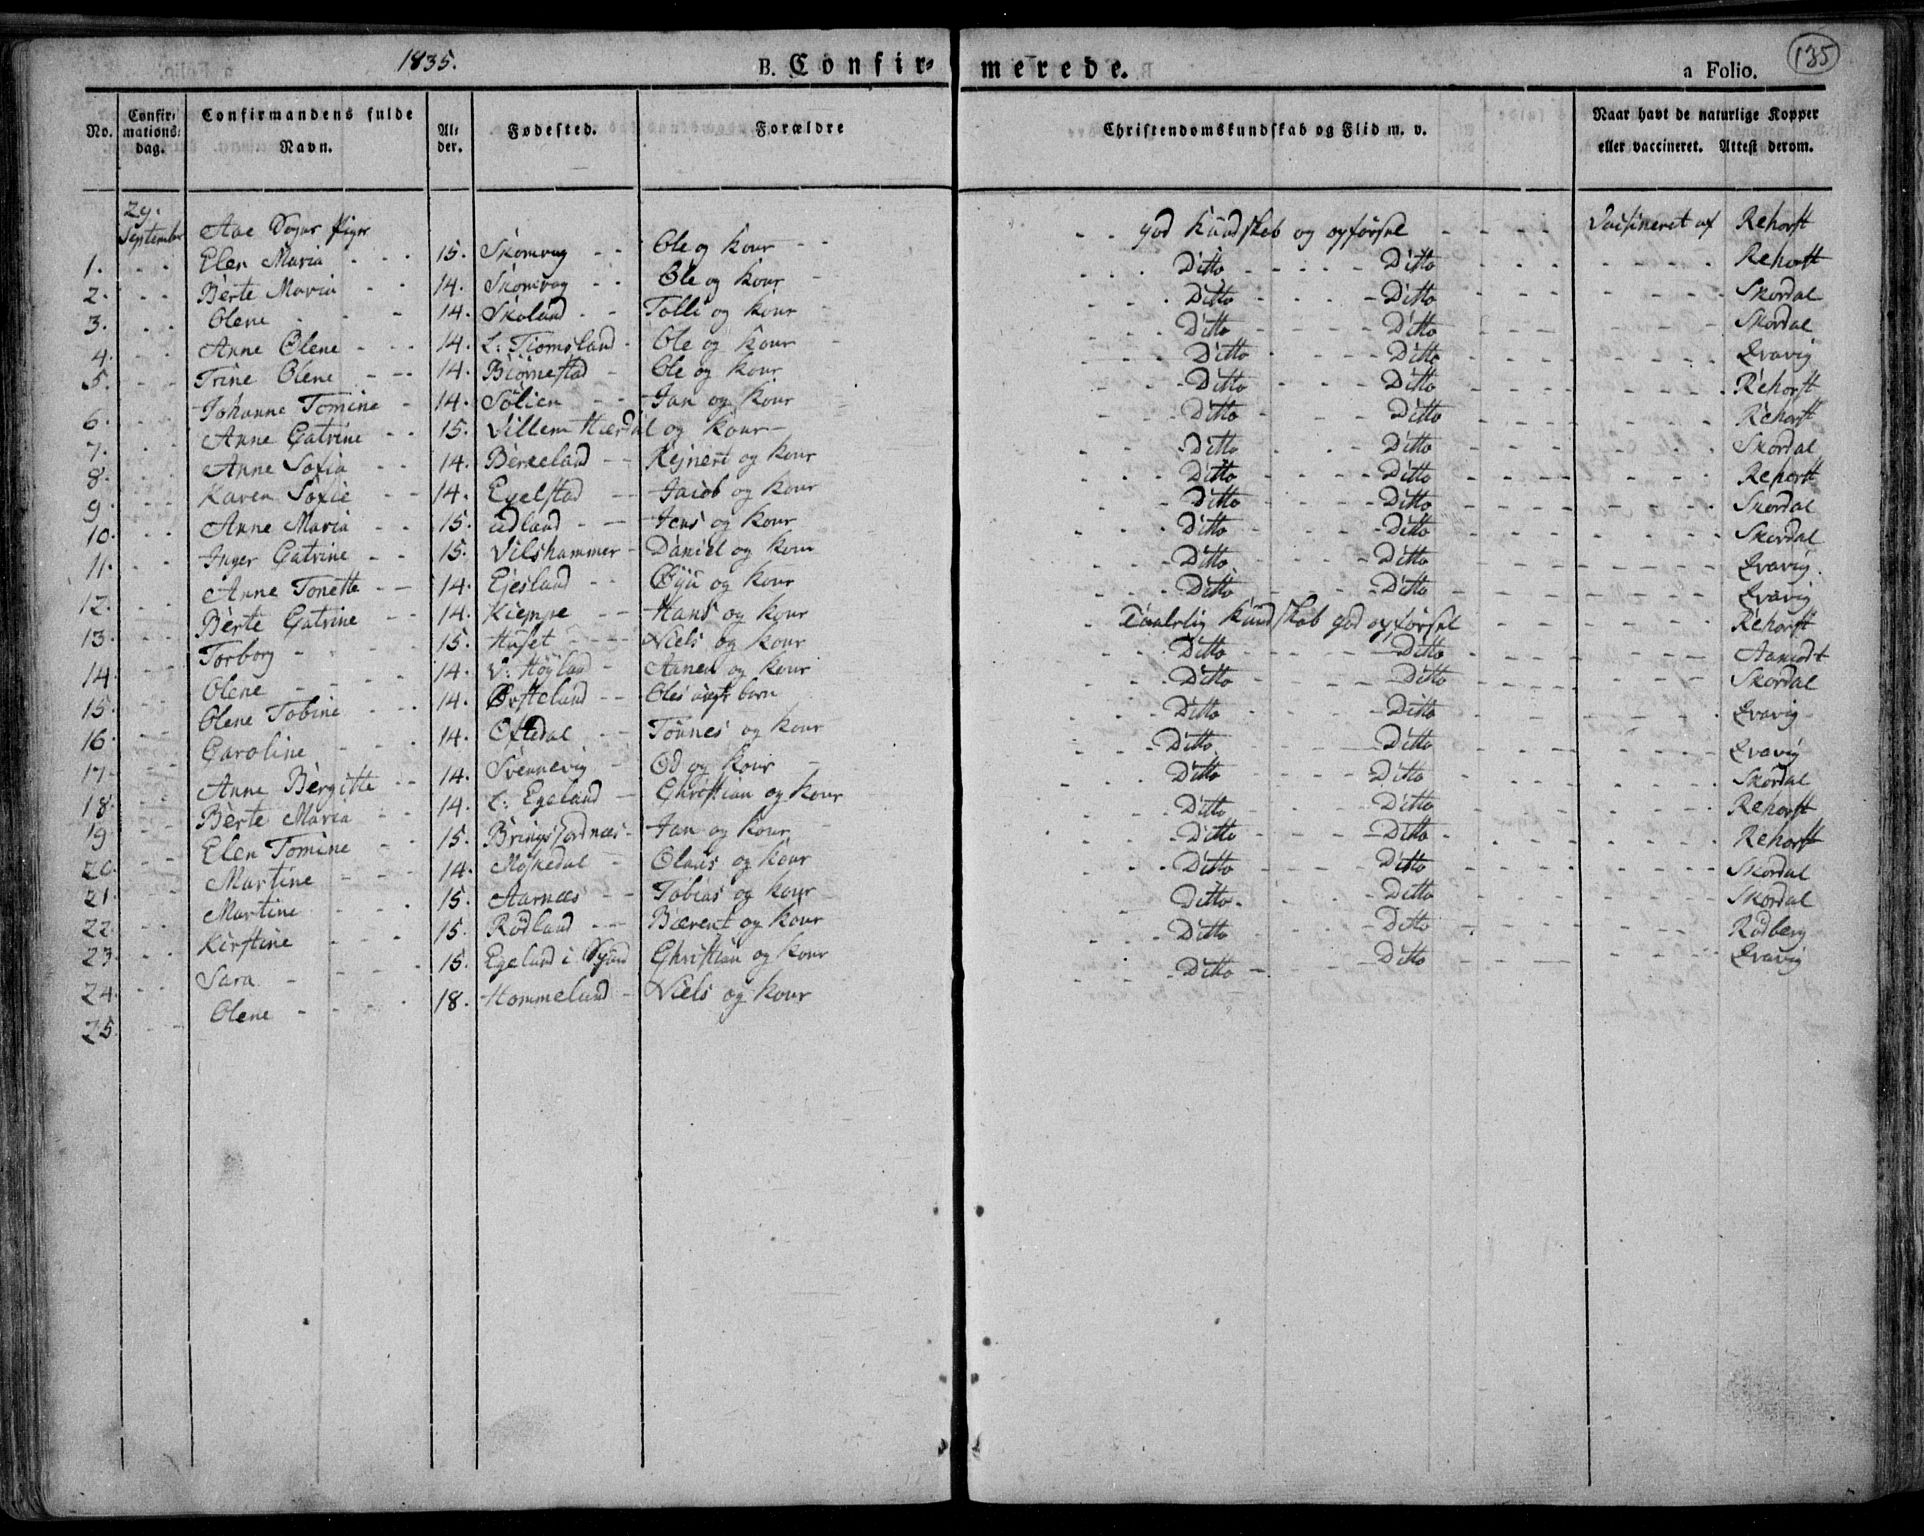 1835. B. Confir- merede. a Folio. 135
No. Confirmationsdag. Confirmandens fulde Navn. Alder. Fødested. Forældre Christendomskundskab og Flid m. v. Naar havt de naturlige Kopper eller vaccineret. Attest derom.
29. September Aae Sogns Piger
1. Elen Maria 15. Skomvog Ole og Kour god Kundskab og opførsel Vaisineret af Rehorst
2. Berte Maria 14. Skomvog Ole og Kour Ditto Ditto Rehorst
3. Olene 14. Skoland Tolle og Kour Ditto Ditto Skordal
4. Anne Olene 14. L: Tiomsland Ole og Kour Ditto Ditto Skordal
5. Trine Olene 14. Biörnestad Ole og Kour Ditto Ditto Qvavig
6. Johanne Tomine 14. Sölien Jan og Kour Ditto Ditto Rehorst
7. Anne Catrine 15. Villem Hærdal og Kour Ditto Ditto Rehorst
8. Anne Sofia 14. Berkeland Rejnert og Kour Ditto Ditto Skordal
9. Karen Sofie 14. Egelstad Jacob og Kour Ditto Ditto Rehorst
10. Anne Maria 15. udland Jens og Kour Ditto Ditto Skordal
11. Inger Catrine 15. Vilshammer Daniel og Kour Ditto Ditto Skordal
12. Anne Tonette 14. Ejesland Öÿu og Kour Ditto Ditto Qvavig
13. Berte Catrine 14. Kiempe Hans og Kour Ditto Ditto Qvavig
14. Torborg 15. Huset Niels og Kour Taalelig Kundskab god opførsel Rehorst
15. Olene 14. V: Höÿland Aanen og Kour Ditto Ditto Aamodt
16. Olene Tobine 14. Østeland Oles barn Ditto Ditto Skordal
17. Caroline 14. Oftedal Tönnes og Kour Ditto Ditto Qvavig
18. Anne Bergitte 14. Svennevig Od og Kour Ditto Ditto Qvavig
19 Berte Maria 14. L: Egeland Christian og Kour Ditto Ditto Skordal
20. Elen Tomine 15. Bringsjordnæs Jan og Kour Ditto Ditto Rehorst
21. Martine 14. Möjkedal Olaus og Kour Ditto Ditto Rehorst
22. Martine 15. Aarnæs Tobias og Kour Ditto Ditto Skordal
23. Kirstine 15. Rödland Bærent og Kour Ditto Ditto Skordal
24. Sara 15. Egeland i Christian og Kour Ditto Ditto Rödberg
25. Olene 18. Hommeland Niels og Kour Ditto Ditto Qvavig